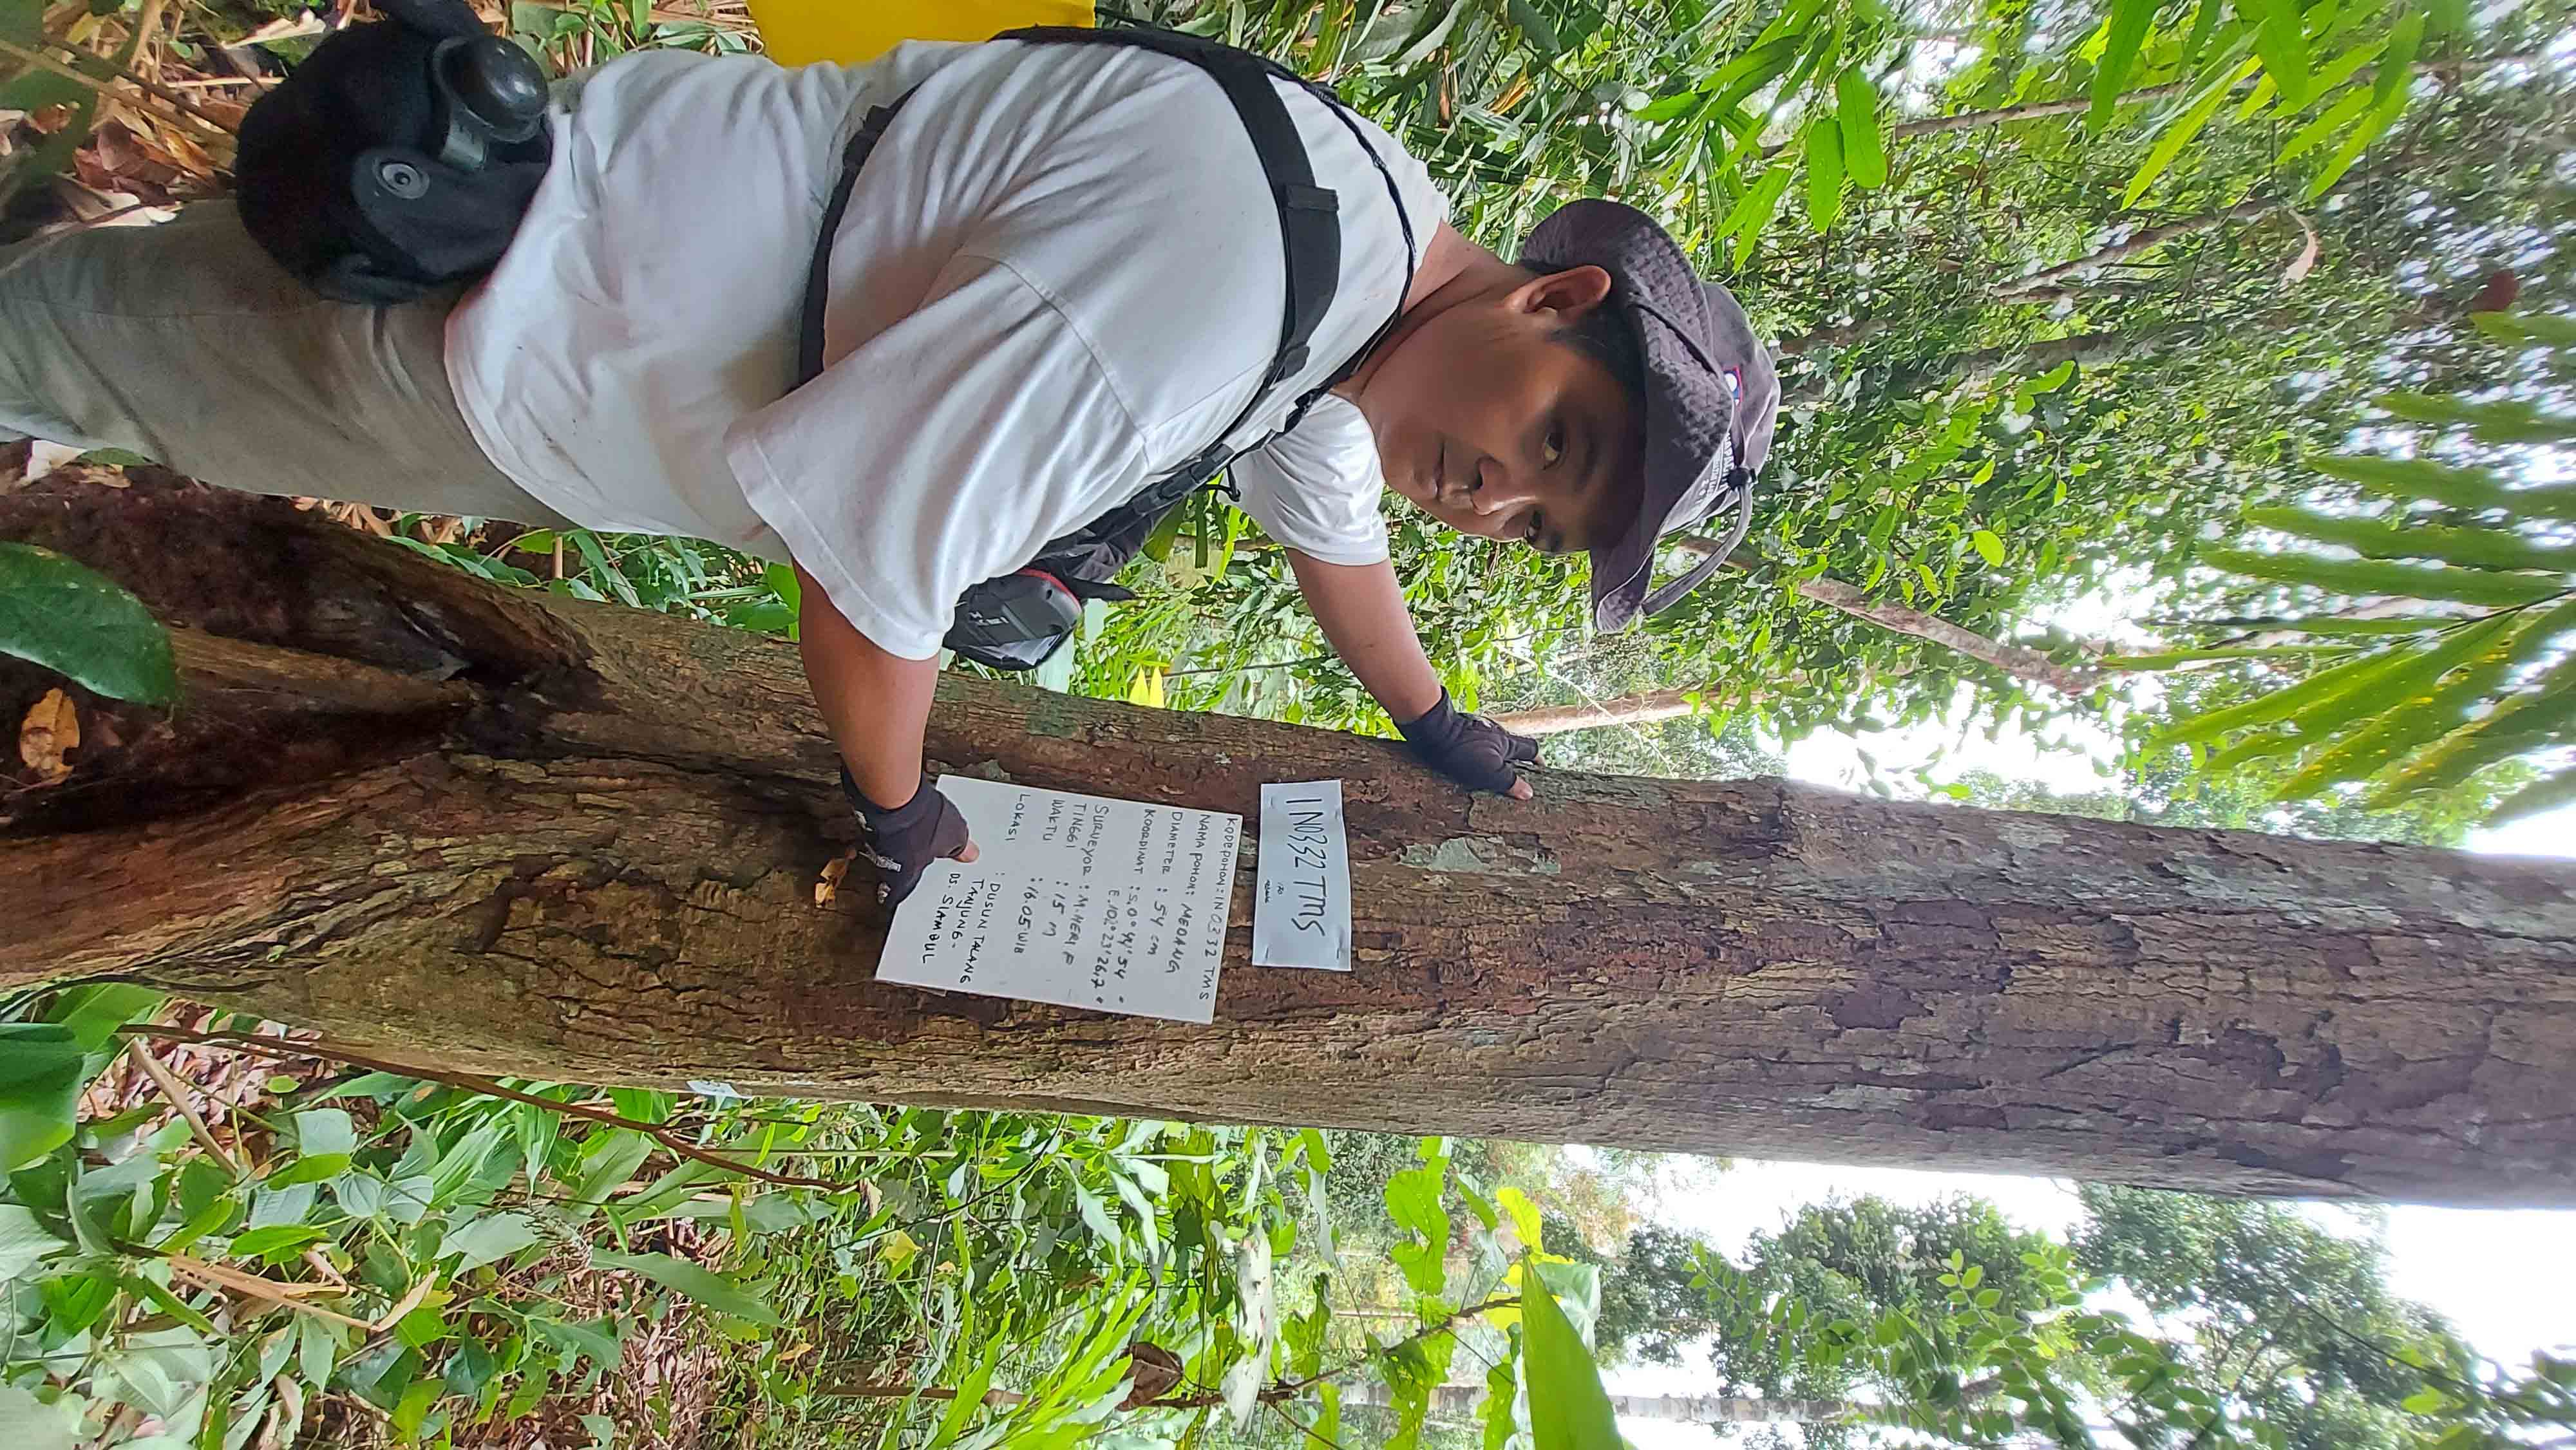 IN0332 TMS
KODE POHON : IN 0332 TMS
NAMA POHON : MEDANG
DIAMETER : 54 cm
KOORDINAT : S.0°44'54"
E.102°23'26,7"
SURVEYOR : M.HERI P
TINGGI : 15 M
WAKTU : 16.05 WIB
LOKASI : DUSUN TALANG
TANJUNG -
DS. SIAMBUL